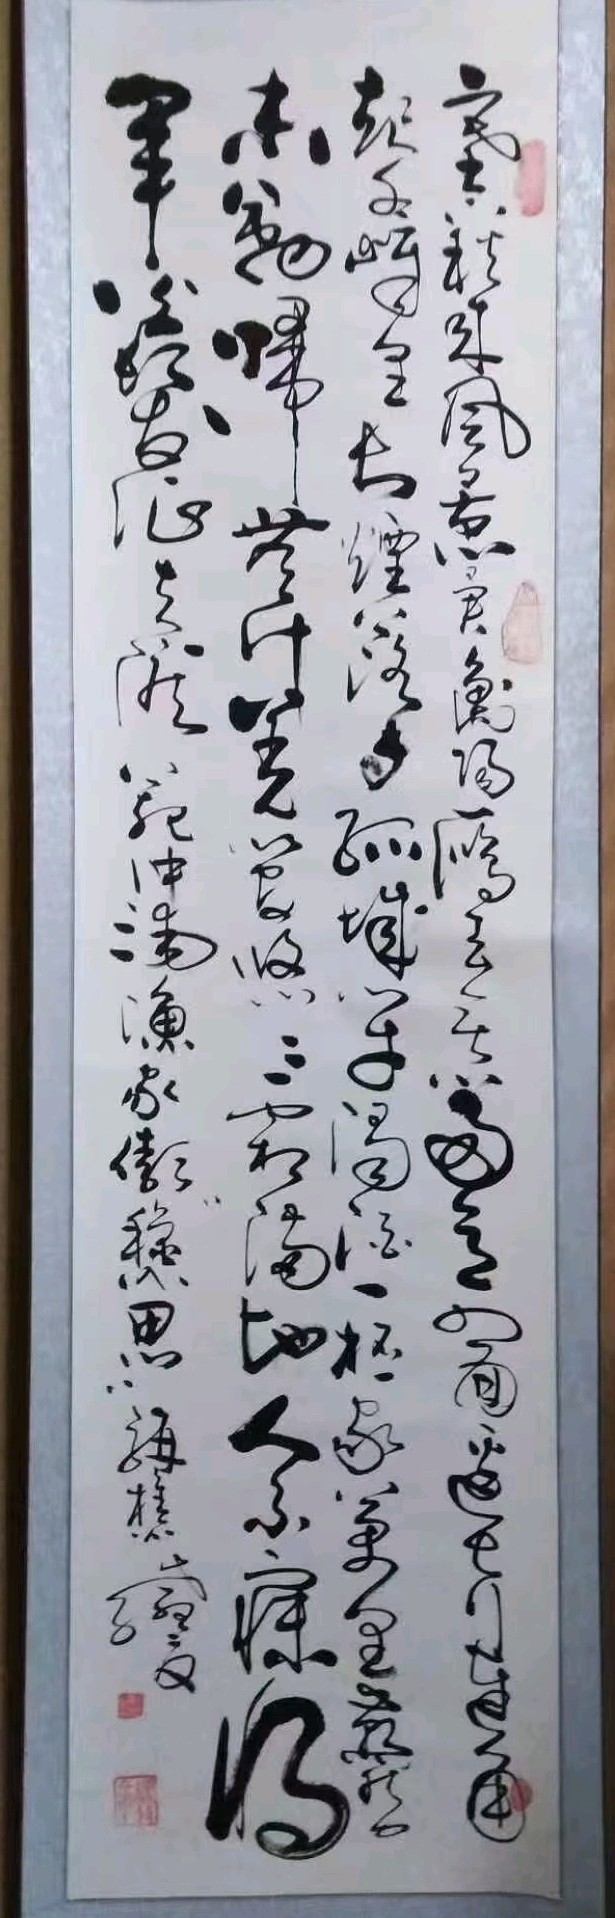 塞下秋来風景異衡陽雁去無留意四面邊聲連角
起千嶂里長煙落日孤城閉濁酒一杯家萬里燕然
未勒歸無計羌管悠悠霜滿地人不寐將
軍白髮征夫淚 范仲淹漁家傲秋思